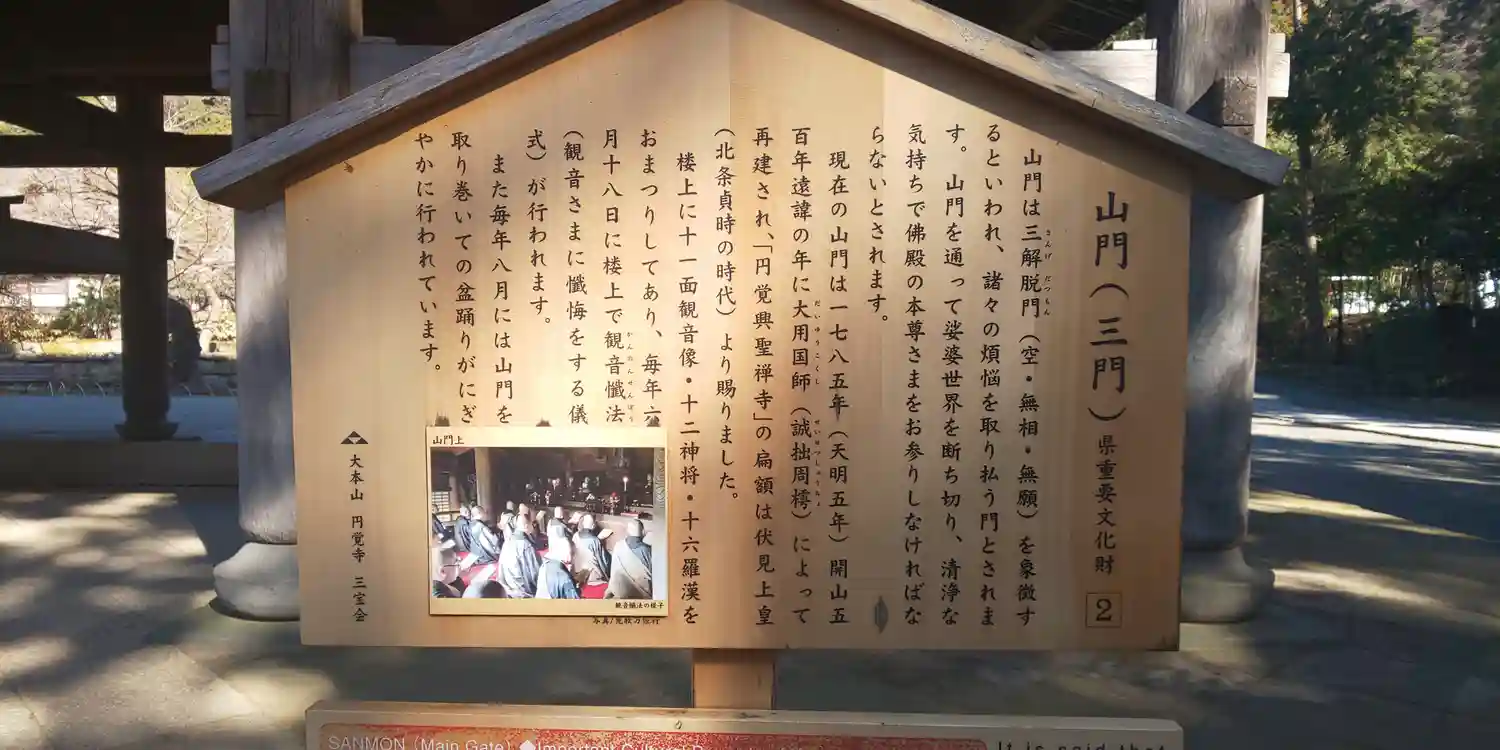 山門(三門) 県重要文化財 2
山門は三解脱門(空・無相・無願)を象徴す
るといわれ、諸々の煩悩を取り払う門とされま
す。山門を通って娑婆世界を断ち切り、清浄な
気持ちで佛殿の本尊さまをお参りしなければな
らないとされます。
現在の山門は一七八五年(天明五年)開山五
百年遠諱の年に大用国師(誠拙周樗)によって
再建され、「円覚興聖禅寺」の扁額は伏見上皇
(北条貞時の時代)より賜りました。
楼上に十一面観音像・十二神将・十六羅漢を
おまつりしてあり、毎年六
月十八日に楼上で観音懺法
(観音さまに懺悔をする儀
式)が行われます。
また毎年八月には山門を
取り巻いての盆踊りがにぎ
やかに行われています。
山門上
観音懺法の様子
大本山 円覚寺 三宝会
SANMON (Main Gate) ◆Important Cultural
It is said that